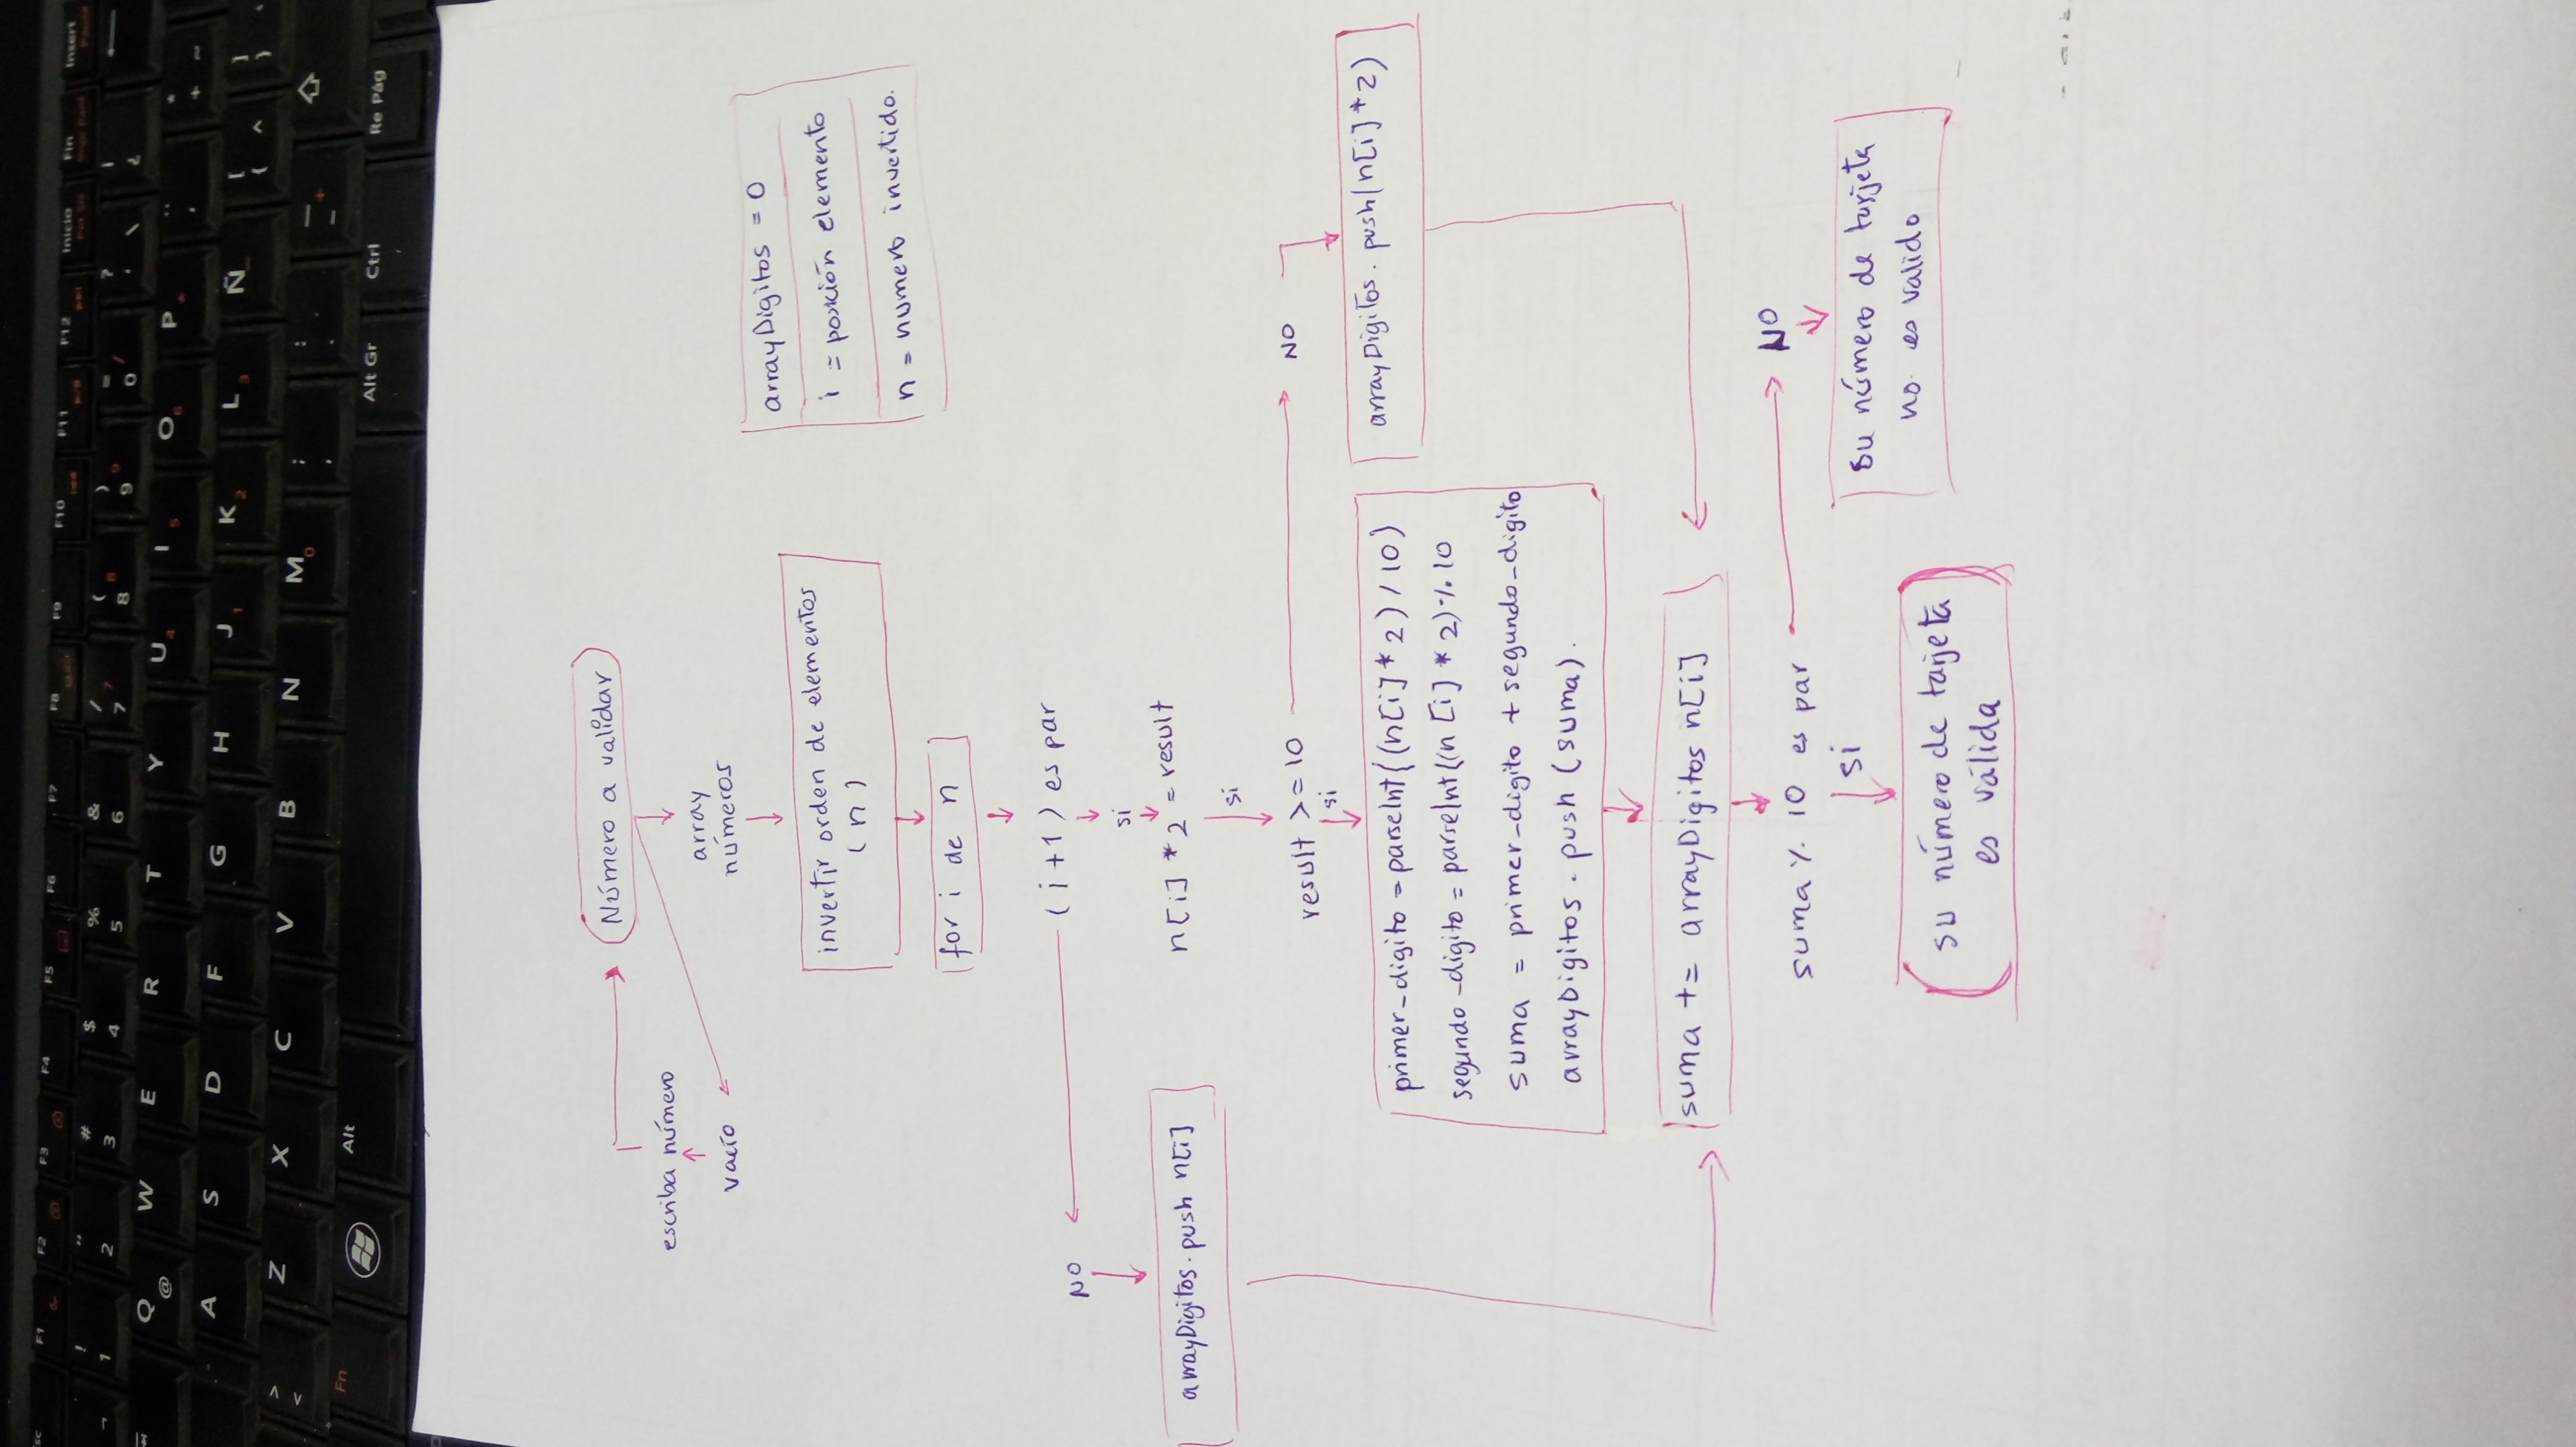 sc F1 F2 F3 F4 F5 F6 F7 F8 F9 F10 F11 F12 Inicio Fin Insert
! " # $ % & / ( ) = ? ¡
1 2 3 4 5 6 7 7 8 8 9 9 0 / ' \ ¿
Q @ W E R T Y U 4 I 5 O 6 P * * + ~
A S D F G H J 1 K 2 L 3 Ñ [ { ^ ] }
> < Z X C V B N M 0 ; , : . _ - +
Fn Alt Alt Gr Ctrl Re Pág
Número a validar
escriba número
vacío
array
números
arrayDigitos = 0
i = posición elemento
n = numero invertido.
invertir orden de elementos
(n)
for i de n
(i+1) es par
NO
si
arrayDigitos.push n[i]
n[i] *2 = result
si
result >=10
NO
si
arrayDigitos.push(n[i]*2)
primer_digito = parseInt((n[i]*2)/10)
segundo_digito = parseInt((n[i]*2)%10
suma = primer_digito + segundo_digito
arrayDigitos.push (suma).
suma += arrayDigitos n[i]
suma % 10 es par
NO
si
su número de tarjeta
no es valido
su número de tarjeta
es válida